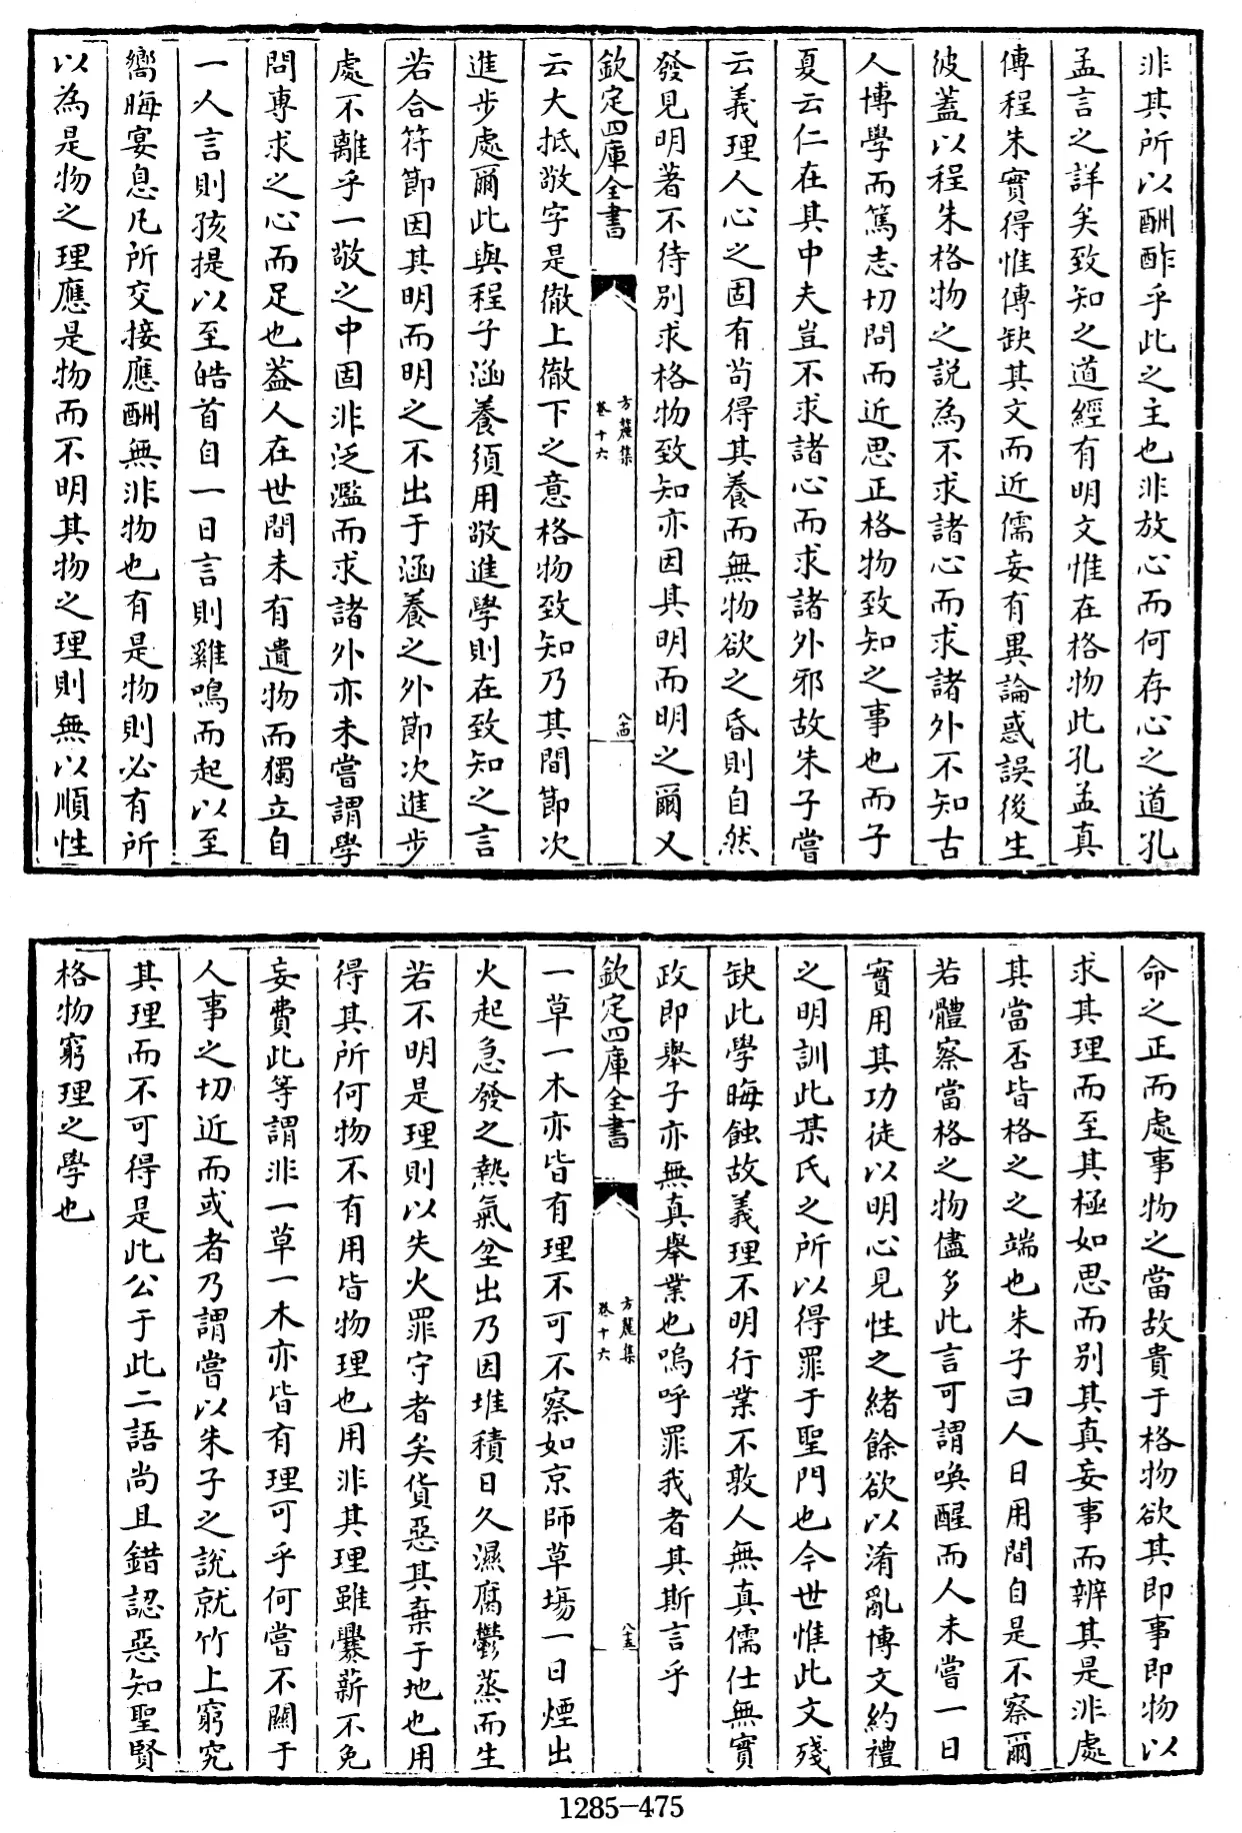 非其所以酬酢乎此之主也非放心而何存心之道孔
孟言之詳矣致知之道經有明文惟在格物此孔孟真
傳程朱實得惟傳缺其文而近儒妄有異論惑誤後生
彼蓋以程朱格物之説為不求諸心而求諸外不知古
人博學而篤志切問而近思正格物致知之事也而子
夏云仁在其中夫豈不求諸心而求諸外邪故朱子嘗
云義理人心之固有苟得其養而無物欲之昏則自然
發見明著不待别求格物致知亦因其明而明之爾又
欽定四庫全書
方麓集
卷十六
八十四
云大抵敬字是徹上徹下之意格物致知乃其間節次
進步處爾此與程子涵養須用敬進學則在致知之言
若合符節因其明而明之不出于涵養之外節次進步
處不離乎一敬之中固非泛濫而求諸外亦未嘗謂學
問專求之心而足也葢人在世間未有遺物而獨立自
一人言則孩提以至皓首自一日言則雞鳴而起以至
嚮晦宴息凡所交接應酬無非物也有是物則必有所
以為是物之理應是物而不明其物之理則無以順性
命之正而處事物之當故貴于格物欲其即事即物以
求其理而至其極如思而别其真妄事而辨其是非處
其當否皆格之之端也朱子曰人日用間自是不察爾
若體察當格之物儘多此言可謂喚醒而人未嘗一日
實用其功徒以明心見性之緒餘欲以淆亂博文約禮
之明訓此某氏之所以得罪于聖門也今世惟此文殘
缺此學晦蝕故義理不明行業不敦人無真儒仕無實
政即舉子亦無真舉業也嗚呼罪我者其斯言乎
欽定四庫全書
方麓集
卷十六
八十五
一草一木亦皆有理不可不察如京師草塲一日煙出
火起急發之熱氣坌出乃因堆積日久濕腐鬱蒸而生
若不明是理則以失火罪守者矣貨惡其棄于地也用
得其所何物不有用皆物理也用非其理雖爨薪不免
妄費此等謂非一草一木亦皆有理可乎何嘗不關于
人事之切近而或者乃謂嘗以朱子之説就竹上窮究
其理而不可得是此公于此二語尚且錯認惡知聖賢
格物窮理之學也
1285-475